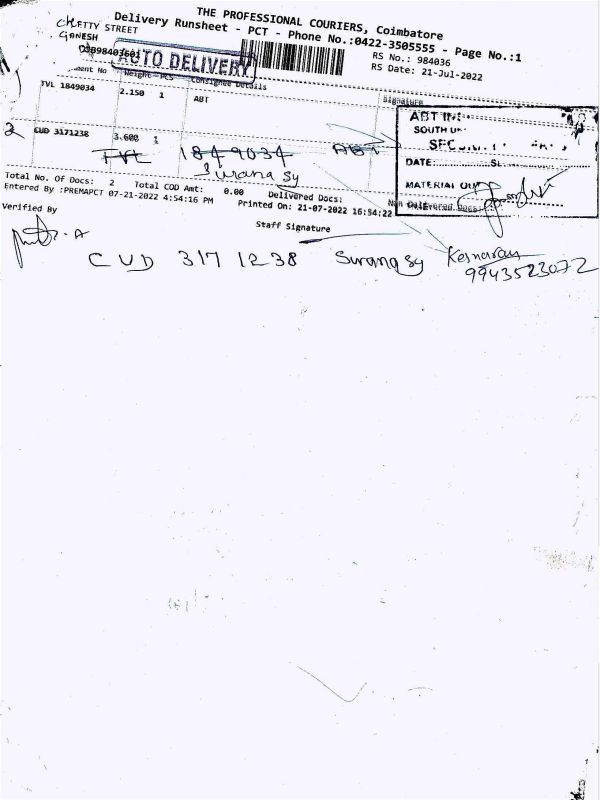 THE PROFESSIONAL COURIERS, Coimbatore
Delivery Runsheet - PCT - Phone No.:0422-3505555 - Page No.:1
CHETTY STREET
GANESH
RS No.: 984036
RS Date: 21-Jul-2022
AUTO DELIVERY
ment No Weight PCS Consignee Details Signature
TVL 1849034 2.150 1 ABT
ABT IN
SOUTH
2 CUD 3171238 3.600 1
TVL 1849034 ABT
Surana sy
DATE SL
MATERIAL OUT
Total No. Of Docs: 2 Total COD Amt: 0.00 Delivered Docs: Non Delivered Docs:
Entered By :PREMAPCT 07-21-2022 4:54:16 PM Printed On: 21-07-2022 16:54:22
Verified By
Staff Signature
CUD 317 1238 Surana sy
9943523072